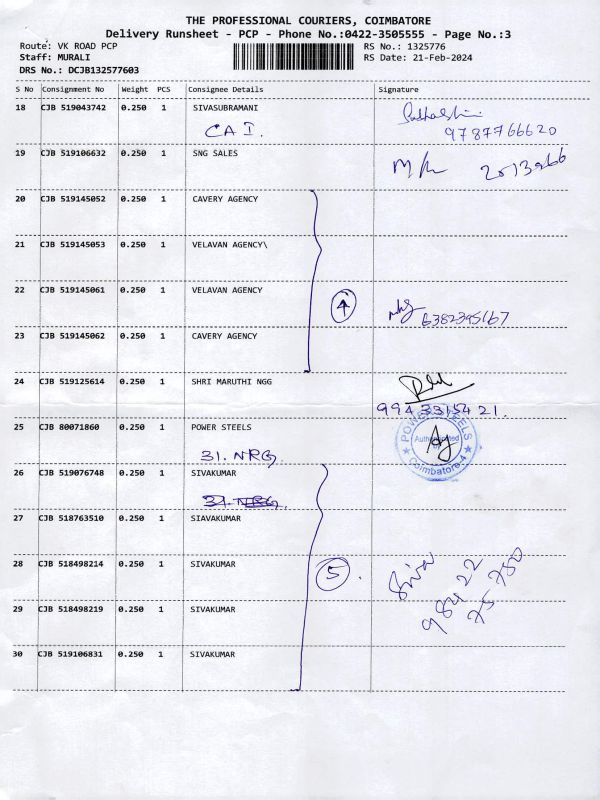 THE PROFESSIONAL COURIERS, COIMBATORE
Delivery Runsheet - PCP - Phone No.:0422-3505555 - Page No.:3
Route: VK ROAD PCP RS No.: 1325776
Staff: MURALI RS Date: 21-Feb-2024
DRS No.: DCJB132577603
S No Consignment No Weight PCS Consignee Details Signature
18 CJB 519043742 0.250 1 SIVASUBRAMANI
CAI.
9787766620
19 CJB 519106632 0.250 1 SNG SALES
20 CJB 519145052 0.250 1 CAVERY AGENCY
21 CJB 519145053 0.250 1 VELAVAN AGENCY\
22 CJB 519145061 0.250 1 VELAVAN AGENCY
4
6382395167
23 CJB 519145062 0.250 1 CAVERY AGENCY
24 CJB 519125614 0.250 1 SHRI MARUTHI NGG
994 3315421.
25 CJB 80071860 0.250 1 POWER STEELS
31. NRG
POWER STEELS
Coimbatore-4
26 CJB 519076748 0.250 1 SIVAKUMAR
27 CJB 518763510 0.250 1 SIAVAKUMAR
28 CJB 518498214 0.250 1 SIVAKUMAR
5.
Siva
98422
75750
29 CJB 518498219 0.250 1 SIVAKUMAR
30 CJB 519106831 0.250 1 SIVAKUMAR